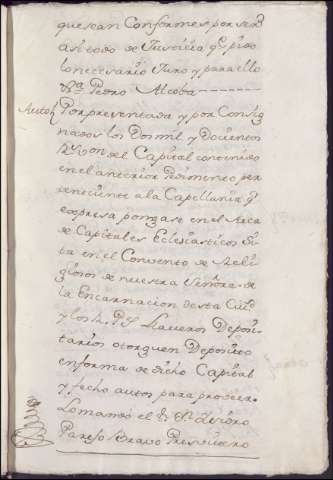 que sean Conformes por ser
asi todo de Justicia qe. pido
lo necesario Juro y para ello
Pedro Alcoba
Auto Por presentada y por Consig
nados los Dos mil y Docientos
Rs. von del Capital contenido
en el anterior Pedimento per
teneciente a la Capellania qe.
expresa pongase en el Arca
de Capitales Eclesiasticos Si
ta en el Convento de Reli
giosos de nuestra Señora de
la Encarnacion desta Ciud
y los Llaveros Deposi
tarios otorguen Deposito
en forma de dicho Capital
y fecho autos para proveer
Lo mando el Sr. Dr. Isidro
Parejo Bravo Presvitero